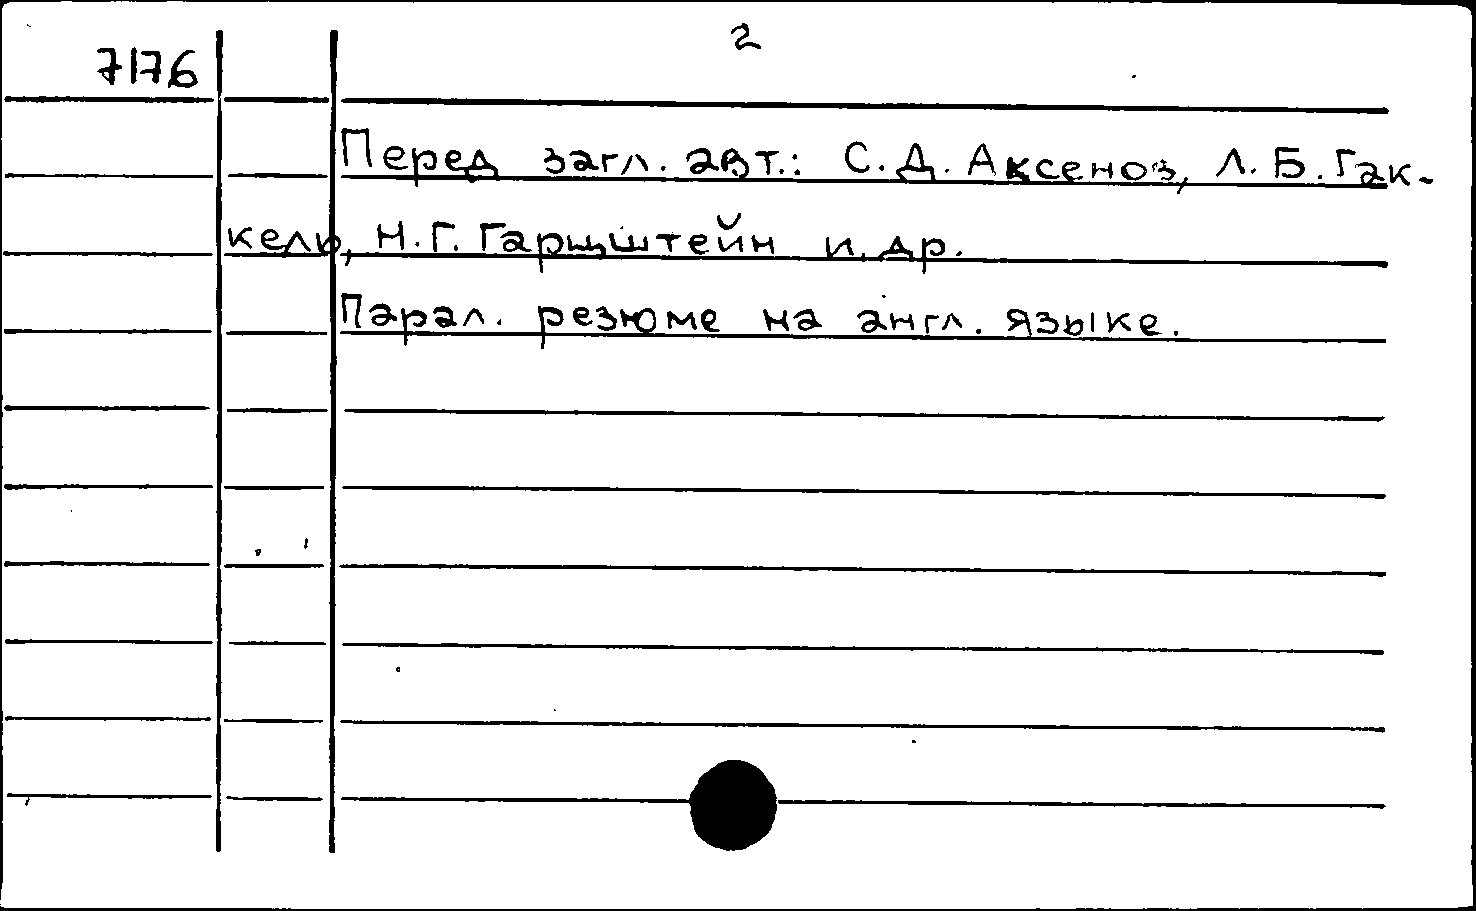 2
7176
Перед загл. авт.: С.Д. Аксенов, Л.Б. Гак-
кель, Н.Г. Гарщштейн и др.
Парал. резюме на англ. языке.